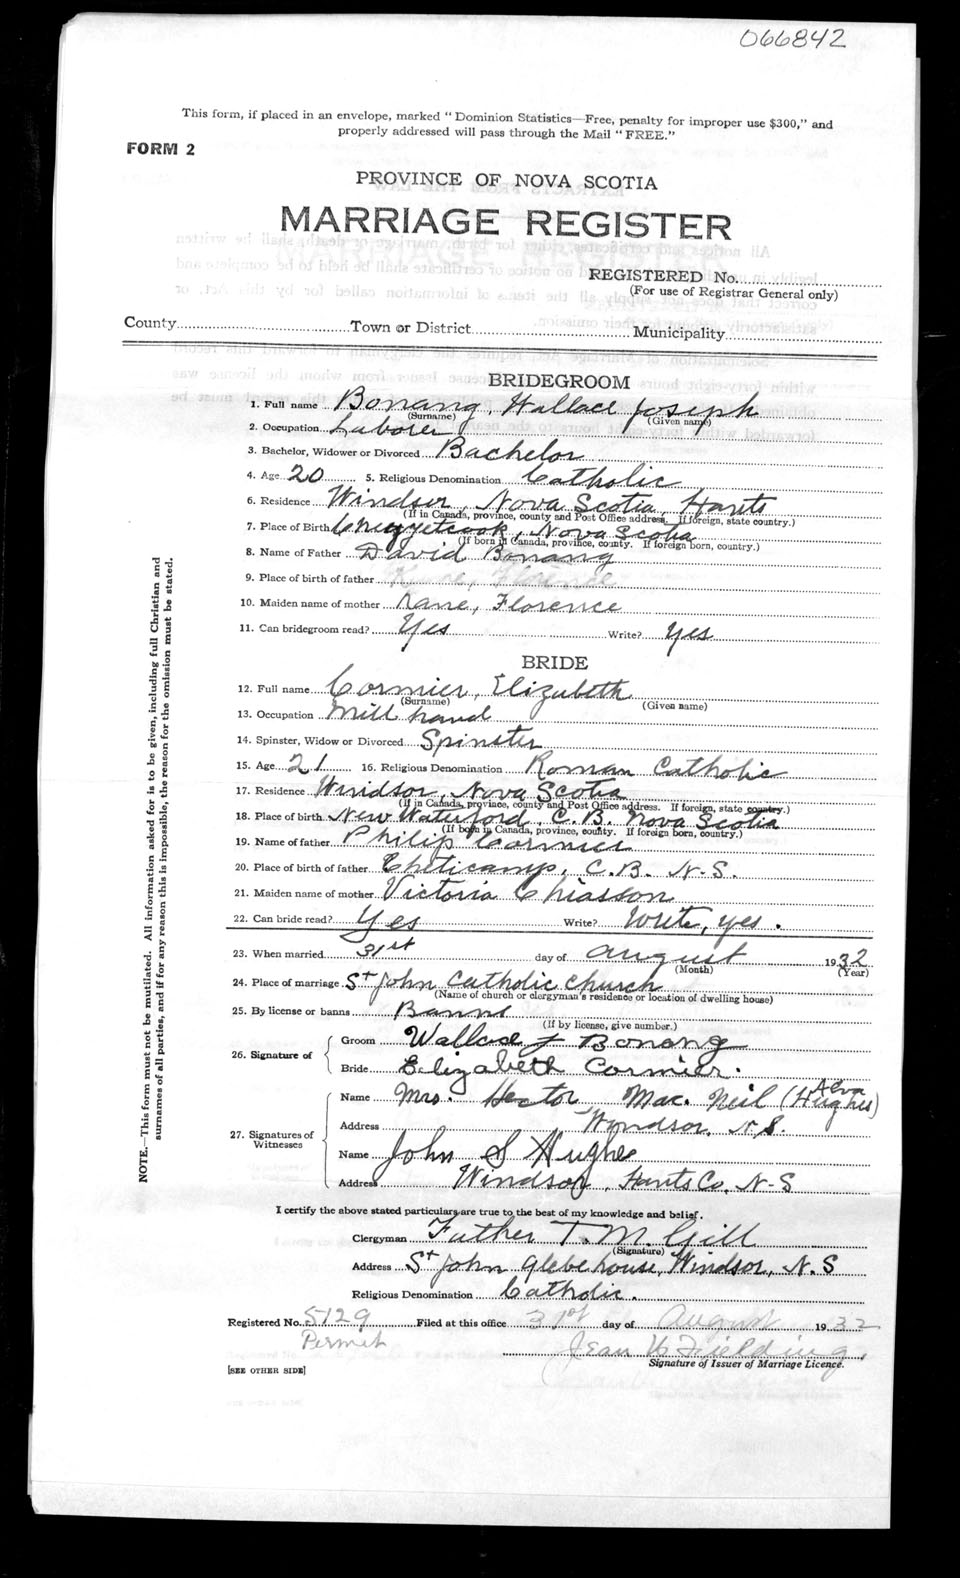 066842
This form, if placed in an envelope, marked "Dominion Statistics—Free, penalty for improper use $300," and
properly addressed will pass through the Mail "FREE."
FORM 2
PROVINCE OF NOVA SCOTIA
MARRIAGE REGISTER
REGISTERED No.
(For use of Registrar General only)
County Town or District Municipality
BRIDEGROOM
1. Full name Bonang, Wallace Joseph
(Surname) (Given name)
2. Occupation Laborer
3. Bachelor, Widower or Divorced Bachelor
4. Age 20 5. Religious Denomination Catholic
6. Residence Windsor, Nova Scotia, Hants
(If in Canada, province, county and Post Office address. If foreign, state country.)
7. Place of Birth Chezzetcook, Nova Scotia
(If born in Canada, province, county. If foreign born, country.)
8. Name of Father David Bonang
9. Place of birth of father
10. Maiden name of mother Kane, Florence
11. Can bridegroom read? Yes Write? yes
BRIDE
12. Full name Cormier, Elizabeth
(Surname) (Given name)
13. Occupation Mill hand
14. Spinster, Widow or Divorced Spinster
15. Age 21 16. Religious Denomination Roman Catholic
17. Residence Windsor, Nova Scotia
(If in Canada, province, county and Post Office address. If foreign, state country.)
18. Place of birth New Waterford, C.B. Nova Scotia
(If born in Canada, province, county. If foreign born, country.)
19. Name of father Philip Cormier
20. Place of birth of father Cheticamp, C.B. N.S.
21. Maiden name of mother Victoria Chiasson
22. Can bride read? Yes Write? Write, yes.
23. When married 31st day of August 1932
(Month) (Year)
24. Place of marriage St John Catholic Church
(Name of church or clergyman's residence or location of dwelling house)
25. By license or banns Banns
(If by license, give number.)
26. Signature of Groom Wallace J Bonang
Bride Elizabeth Cormier.
27. Signatures of Witnesses
Name Mrs. Hector Mac. Neil (Alva Hughes)
Address Windsor, N.S.
Name John S Hughes
Address Windsor, Hants Co. N-S
I certify the above stated particulars are true to the best of my knowledge and belief.
Clergyman Father T. M. Gill
(Signature)
Address St John Glebe house, Windsor, N.S
Religious Denomination Catholic.
Registered No. 5129 Filed at this office 31st day of August 1932
Permit Jean H Fielding
Signature of Issuer of Marriage Licence.
[SEE OTHER SIDE]
NOTE.—This form must not be mutilated. All information asked for is to be given, including full Christian and
surnames of all parties, and if for any reason this is impossible, the reason for the omission must be stated.